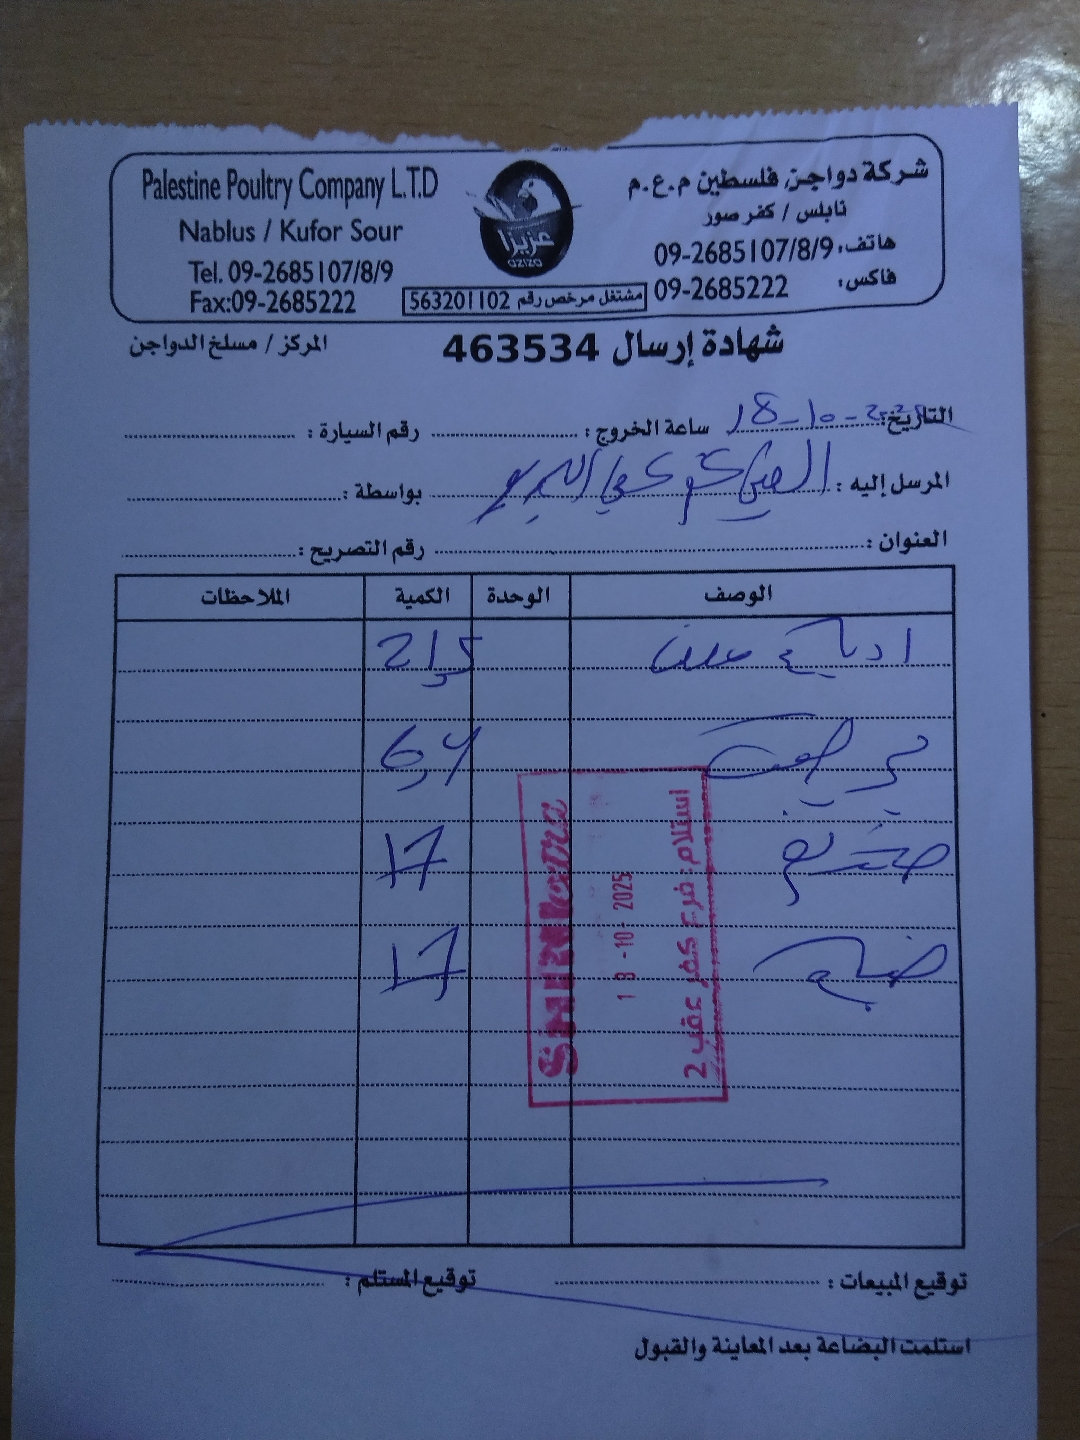 Palestine Poultry Company L.T.D
Nablus / Kufor Sour
Tel. 09-2685107/8/9
Fax:09-2685222
عزيزا
aziza
شركة دواجن فلسطين م.ع.م
نابلس / كفر صور
هاتف: 09-2685107/8/9
فاكس: 09-2685222
مشتغل مرخص رقم 563201102
شهادة إرسال 463534
المركز / مسلخ الدواجن
التاريخ: 18-10- ساعة الخروج : رقم السيارة :
المرسل إليه : بواسطة :
العنوان : رقم التصريح :
الوصف الوحدة الكمية الملاحظات
2,5
6,4
17
17
استلام: فرع كفر عقب 2
18-10-2025
توقيع المبيعات : توقيع المستلم :
استلمت البضاعة بعد المعاينة والقبول